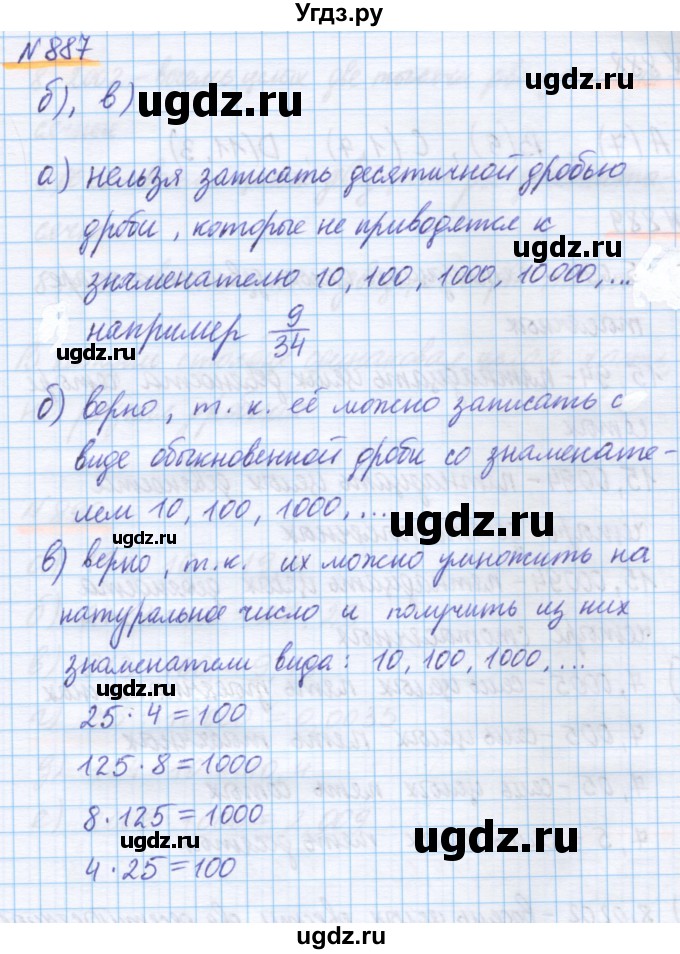 Угдз.ру
N 887
б), в)
ugdz.ru
а) нельзя записать десятичной дробью
дроби, которые не приводятся к
ugdz.ru
знаменателю 10, 100, 1000, 10000,...
например 9/34
ugdz.ru
б) верно, т.к. её можно записать с
виде обыкновенной дроби со знаменате-
лем 10, 100, 1000,...
ugdz.ru
в) верно, т.к. их можно умножить на
натуральное число и получить из них
знаменатели вида: 10, 100, 1000,...
ugdz.ru
25 · 4 = 100
125 · 8 = 1000
8 · 125 = 1000
ugdz.ru
ugdz.ru
4 · 25 = 100
ugdz.ru